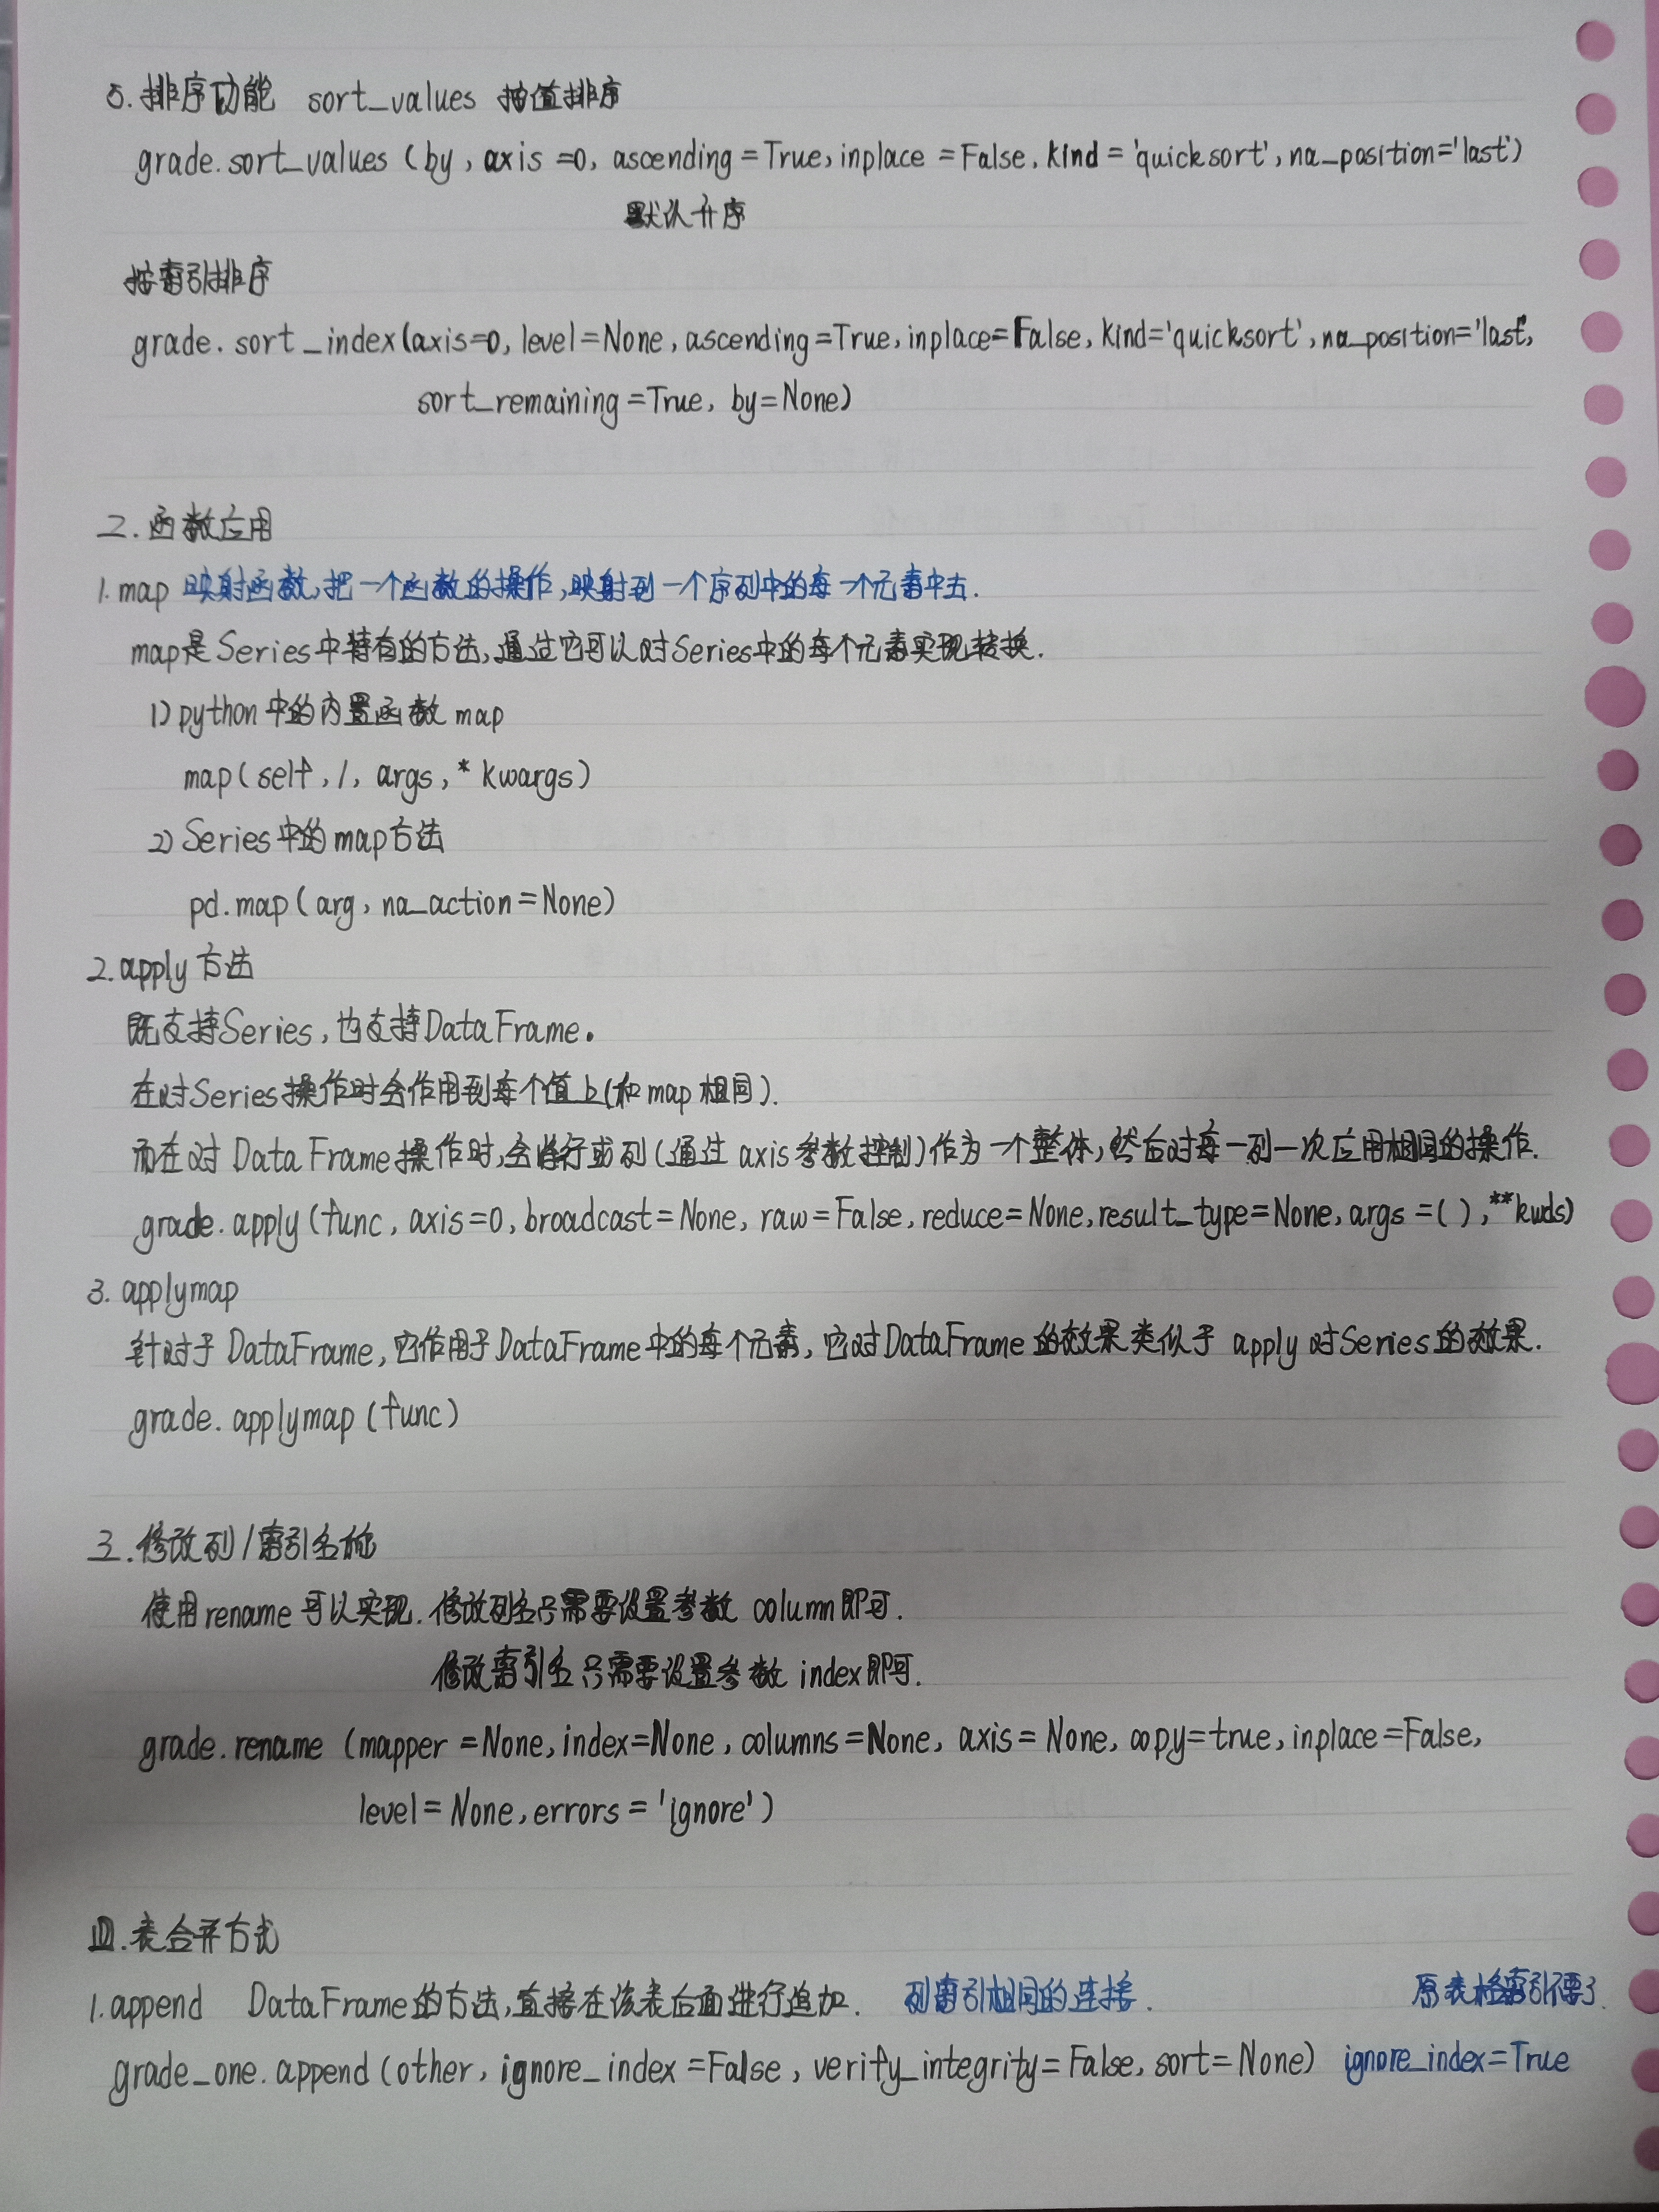 5.排序功能 sort_values 按值排序
grade.sort_values (by, axis=0, ascending=True, inplace=False, kind='quicksort', na_position='last')
默认升序
按索引排序
grade.sort_index(axis=0, level=None, ascending=True, inplace=False, kind='quicksort', na_position='last',
sort_remaining=True, by=None)
二.函数应用
1.map 映射函数,把一个函数的操作,映射到一个序列中的每一个元素中去.
map是Series中特有的方法,通过它可以对Series中的每个元素实现转换.
1)python中的内置函数map
map(self,/, args,* kwargs)
2)Series中的map方法
pd.map(arg, na_action=None)
2.apply方法
既支持Series,也支持DataFrame.
在对Series操作时会作用到每个值上(和map相同).
而在对DataFrame操作时,会将行或列(通过axis参数控制)作为一个整体,然后对每一列一次应用相同的操作.
grade.apply(func, axis=0, broadcast=None, raw=False, reduce=None, result_type=None, args=(),**kwds)
3. applymap
针对于DataFrame,它作用于DataFrame中的每个元素,它对DataFrame的效果类似于apply对Series的效果.
grade.applymap(func)
三.修改列/索引名称
使用rename可以实现.修改列名只需要设置参数column即可.
修改索引名只需要设置参数index即可.
grade.rename (mapper=None, index=None, columns=None, axis=None, copy=true, inplace=False,
level=None, errors='ignore')
四.表合并方式
1.append DataFrame的方法,直接在该表后面进行追加. 列索引相同的连接. 原表格索引不要了.
grade_one.append(other, ignore_index=False, verify_integrity=False, sort=None) ignore_index=True